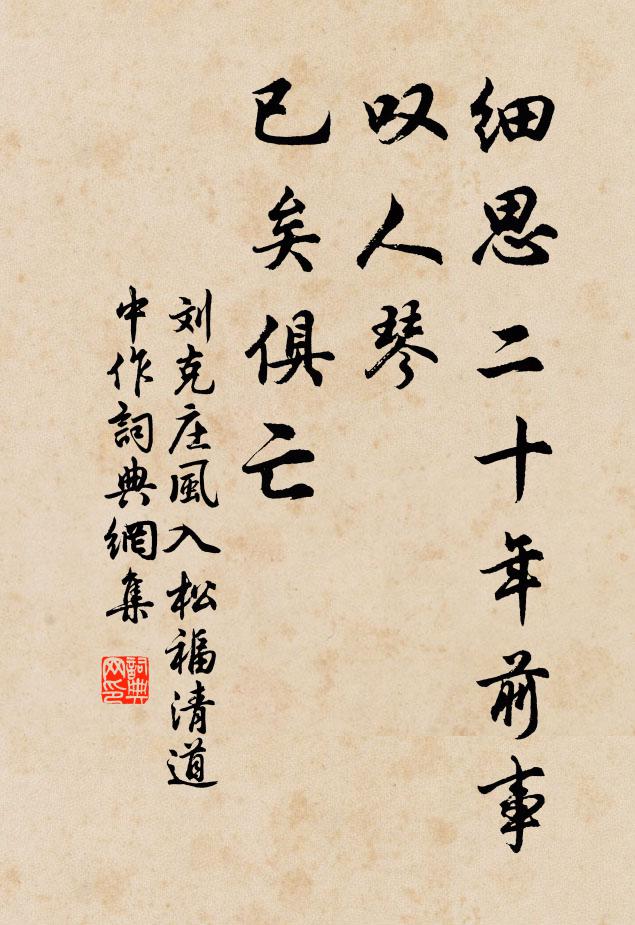 细思二十年前事
叹人琴
已矣俱亡
刘克庄風入松福清道
中作詞典網集
詞典
网印